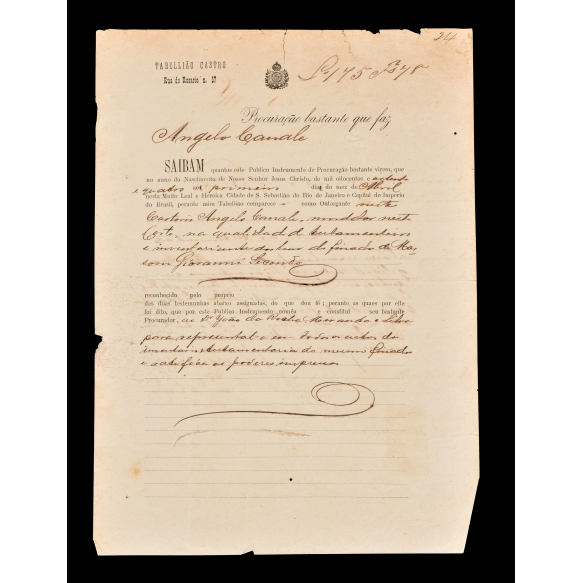 24
TABELLIÃO CASTRO
Rua do Rosario n. 57
Procuração bastante que faz
Angelo Canale
SAIBAM quantos este Publico Instrumento de Procuração bastante virem, que
no anno do Nascimento de Nosso Senhor Jesus Christo, de mil oitocentos e oitenta
e quatro aos primeiro dias do mez de Abril
nesta Muito Leal e Heroica Cidade de S. Sebastião do Rio de Janeiro e Capital do Imperio
do Brasil, perante mim Tabellião compareceo como Outorgante neste
Cartorio Angelo Canale, morador nesta
Corte, na qualidade de testamenteiro
e inventariante dos bens do finado
Giovanni
reconhecido pelo proprio
das duas testemunhas abaixo assignadas, de que dou fé; perante as quaes por elle
foi dito, que por este Publico Instrumento nomêa e constitui seu bastante
Procurador, ao Dr João da Costa e
para representar em todos os actos do
inventario e testamentaria do mesmo finado
e ratifica os poderes impressos